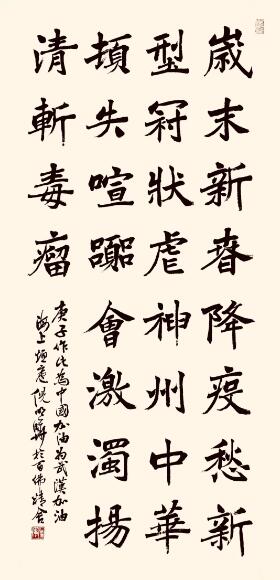 歲末新春降疫愁新
型冠狀虐神州中華
頓失喧會激濁揚
清斬毒瘤
庚子作此為中國加油為武漢加油
海上倪於百佛精舍